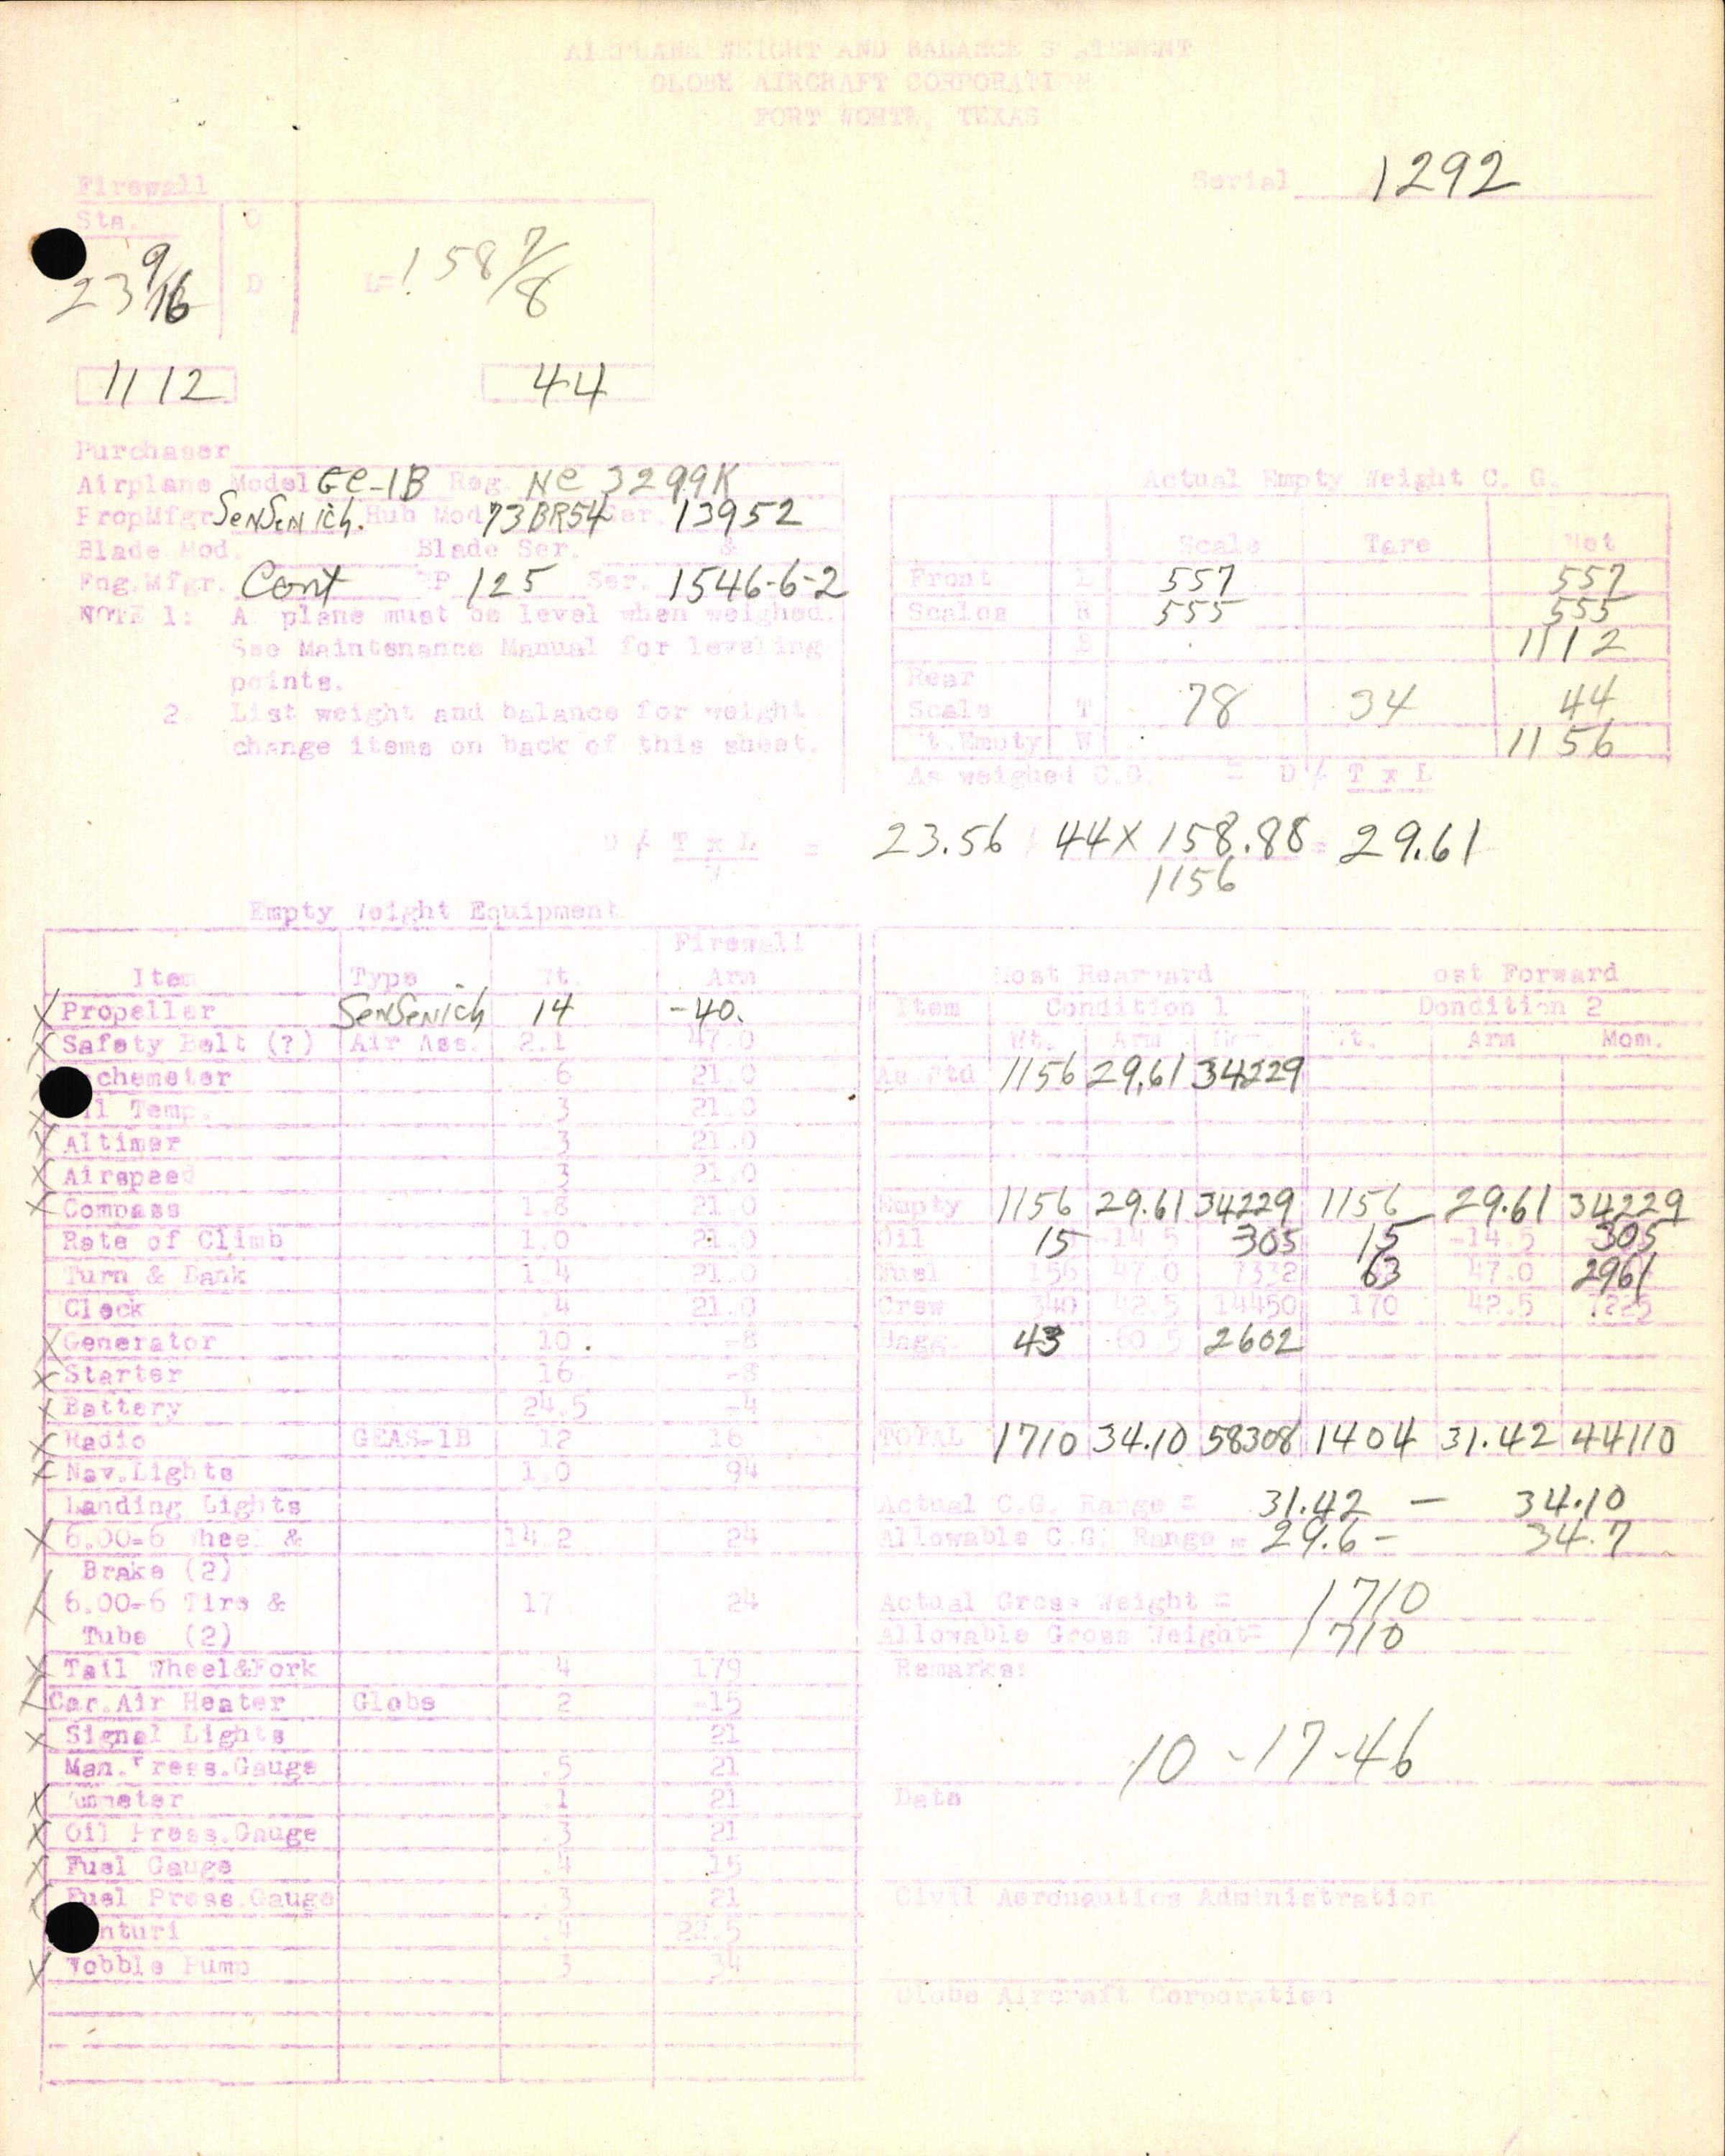 AIRPLANE WEIGHT AND BALANCE STATEMENT
GLOBE AIRCRAFT CORPORATION
FORT WORTH, TEXAS
Serial 1292
Firewall
Sta. O
23 9/16 D L= 158 7/8
1112 44
Purchaser
Airplane Model GC-1B Reg. NC 3299K
PropMfgr Sensenich. Hub Mod 73BR54 Ser. 13952
Blade Mod. Blade Ser. &
Eng.Mfgr. Cont HP 125 Ser. 1546-6-2
NOTE 1: A plane must be level when weighed.
See Maintenance Manual for leveling
points.
2. List weight and balance for weight
change items on back of this sheet.
Actual Empty Weight C. G.
Scale Tare Net
Front L 557 557
Scales R 555 555
B 1112
Rear
Scale T 78 34 44
t.Empty W 1156
As weighed C.G. = D ≠ T x L
D ≠ T x L = 23.56 44 X 158.88 = 29.61
1156
Empty Weight Equipment
Firewall
Item Type Wt. Arm
X Propeller Sensenich 14 -40.
X Safety Belt (?) Air Ass. 2.1 47.0
chemeter 6 21.0
il Temp. 3 21.0
X Altimer 3 21.0
X Airspeed 3 21.0
X Compass 1.8 21.0
Rate of Climb 1.0 21.0
Turn & Bank 1.4 21.0
Clock 4 21.0
X Generator 10. -8
X Starter 16 -8
X Battery 24.5 -4
X Radio GEAS-1B 12 16
X Nav.Lights 1.0 94
Landing Lights
X 6.00-6 Wheel & 14.2 24
Brake (2)
X 6.00-6 Tire & 17 24
Tube (2)
X Tail Wheel&Fork 4 179
X Car.Air Heater Globe 2 -15
X Signal Lights 21
Man.Press.Gauge .5 21
X Ammeter .1 21
X Oil Press.Gauge .3 21
X Fuel Gauge .4 15
X Fuel Press.Gauge .3 21
nturi .4 22.5
X Wobble Pump 3 34
Most Rearward ost Forward
Item Condition 1 Dondition 2
Wt. Arm Mom. Wt. Arm Mom.
As Wtd 1156 29.61 34229
Empty 1156 29.61 34229 1156 29.61 34229
Oil 15 -14.5 305 15 -14.5 305
Fuel 156 47.0 7332 63 47.0 2961
Crew 340 42.5 14450 170 42.5 7225
Bagg. 43 60.5 2602
TOTAL 1710 34.10 58308 1404 31.42 44110
Actual C.G. Range = 31.42 — 34.10
Allowable C.G. Range = 29.6 - 34.7
Actual Gross Weight = 1710
Allowable Gross Weight= 1710
Remarks:
10-17-46
Date
Civil Aeronautics Administration
Globe Aircraft Corporation